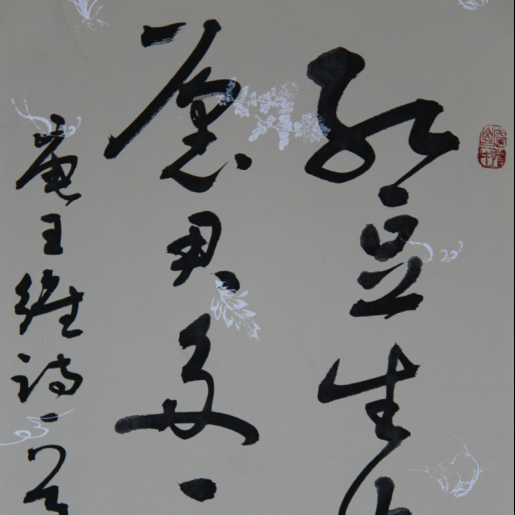 红豆生
愿君多
唐王维诗一首